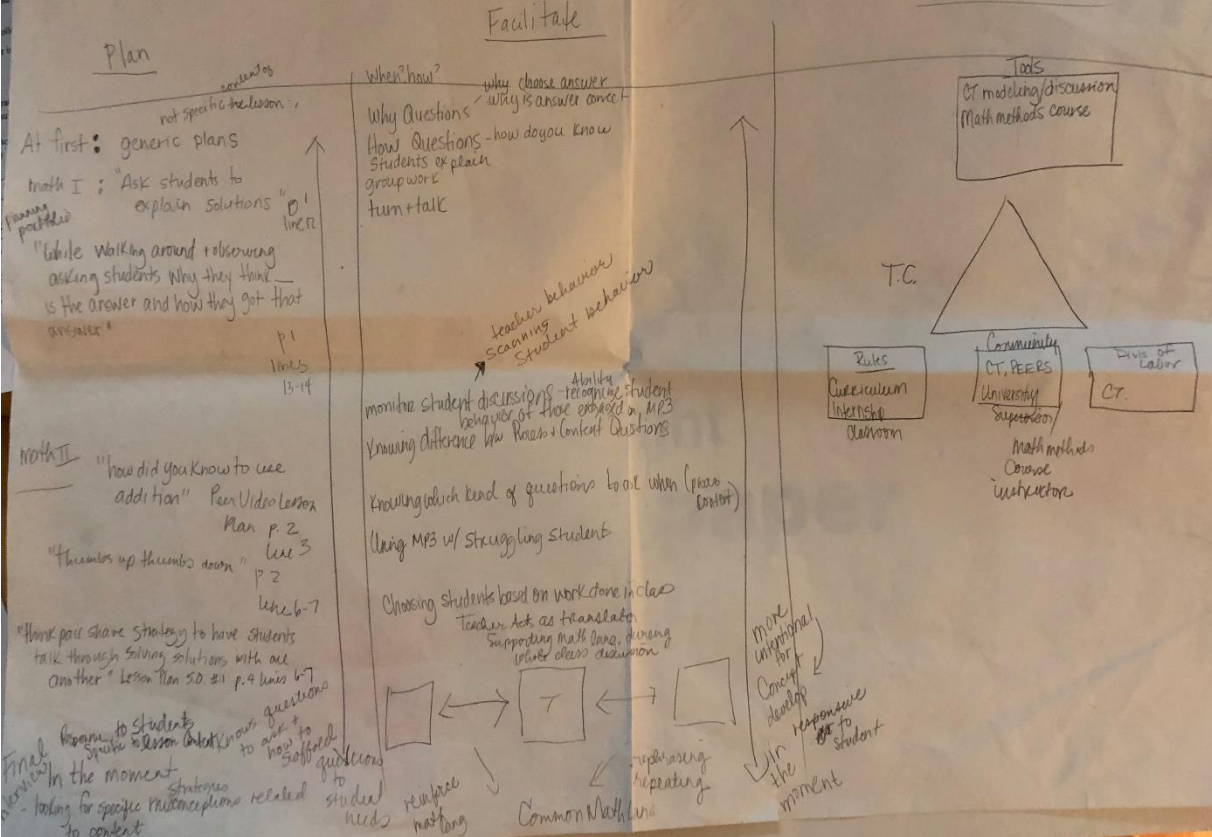 Plan
content of
not specific the lesson
At first: generic plans
math I : "Ask students to
explain solutions" p1
line 12
planning
portfolio
"While walking around + observing
asking students why they think __
is the answer and how they got that
answer"
p1
lines
13-14
math II
"how did you know to use
addition" Peer Video Lesson
Plan p. 2
line 3
"thumbs up thumbs down"
p 2
line 6-7
"think pair share strategy to have students
talk through solving solutions with one
another" Lesson Plan S.O. #1 p. 4 lines 6-7
Final
interview
to students
specific to lesson content
In the moment
strategies
- looking for specific misconceptions related
to content
knows questions
to ask +
how to
scaffold
questions
to
student
needs
Facilitate
When? how?
Why Questions
why choose answer
why is answer correct
How Questions - how do you know
Students explain
group work
turn + talk
teacher behavior
scanning
student behavior
monitor student discussions - Ability
recognize student
behavior of those engaged in MP3
Knowing difference b/w Process + Content Questions
Knowing which kind of questions to ask when (process
content)
Using MP3 w/ Struggling Student
Choosing students based on work done in class
Teacher Acts as translator
Supporting Math lang. during
whole class discussion
T
reinforce
math
lang
Common Math Lang
rephrasing
repeating
more
intentional
for
Concept
develop
in
the
moment
responsive
to
student
Tools
CT modeling/discussion
Math methods course
T.C.
Rules
Curriculum
Internship
classroom
Community
CT, PEERS
University
Supervisor
Math methods
Course
instructor
Divis of
Labor
CT.